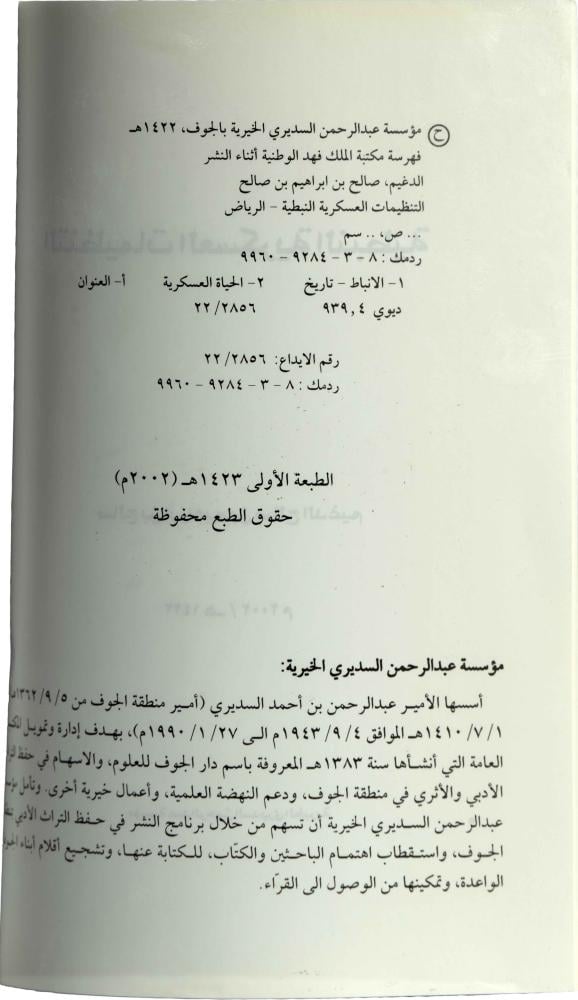 ح مؤسسة عبدالرحمن السديري الخيرية بالجوف، ١٤٢٢هـ
فهرسة مكتبة الملك فهد الوطنية أثناء النشر
الدغيم، صالح بن ابراهيم بن صالح
التنظيمات العسكرية النبطية - الرياض
... ص، .. سم
ردمك : ٨ - ٣ - ٩٢٨٤ - ٩٩٦٠
١- الانباط - تاريخ ٢- الحياة العسكرية أ- العنوان
ديوي ٩٣٩,٤ ٢٢/٢٨٥٦
رقم الايداع: ٢٢/٢٨٥٦
ردمك : ٨ - ٣ - ٩٢٨٤ - ٩٩٦٠
الطبعة الأولى ١٤٢٣هـ (٢٠٠٢م)
حقوق الطبع محفوظة
مؤسسة عبدالرحمن السديري الخيرية:
أسسها الأمير عبدالرحمن بن أحمد السديري (أمير منطقة الجوف من ١٣٦٢/٩/٥هـ
١/ ٧/ ١٤١٠هـ الموافق ٤/ ٩/ ١٩٤٣م الى ٢٧/ ١/ ١٩٩٠م)، بهدف إدارة وتمويل
العامة التي أنشـأها سنة ١٣٨٣هـ المعروفة باسم دار الجوف للعلوم، والاسهام في حفظ
الأدبي والأثري في منطقة الجوف، ودعم النهضة العلمية، وأعمال خيرية أخرى. وتأمل
عبدالرحمن السـديري الخيرية أن تسهم من خلال برنامج النشر في حـفظ التراث الأدبي
الجـوف، واسـتقطاب اهتمـام الباحـثين والكتّاب، للـكتابة عنهـا، وتشجـيع أقلام أبناء
الواعدة، وتمكينها من الوصول الى القرّاء.